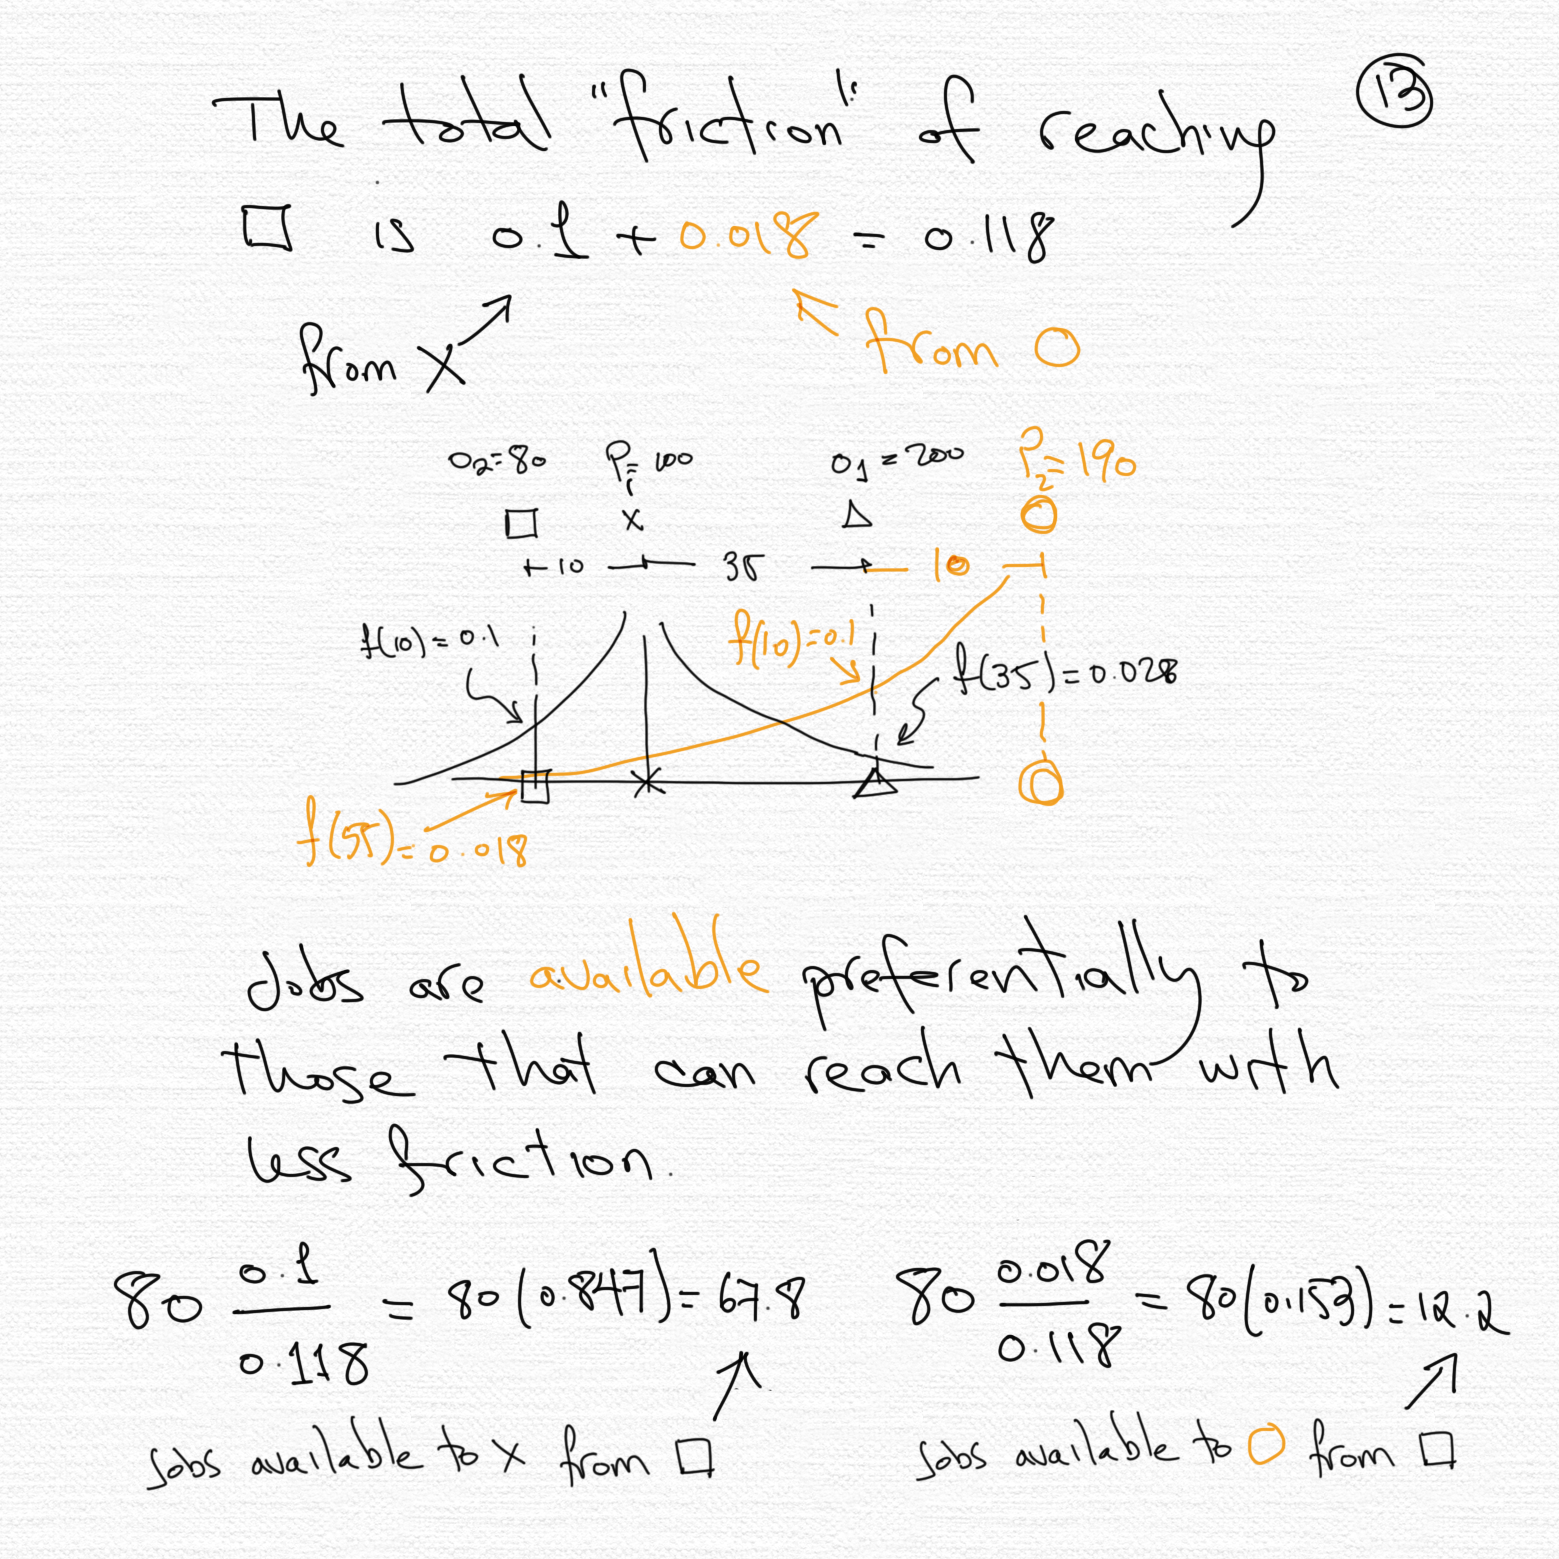 13
The total "friction" of reaching
□ is 0.1 + 0.018 = 0.118
from X
from O
O₂=80 P₁=100 O₁=200 P₂=190
□ X △ O
10 35 10
f(10)=0.1 f(10)=0.1 f(35)=0.028
f(55)=0.018
Jobs are available preferentially to
those that can reach them with
less friction.
80 0.1/0.118 = 80(0.847)=67.8 80 0.018/0.118 = 80(0.153)=12.2
Jobs available to X from □ Jobs available to O from □